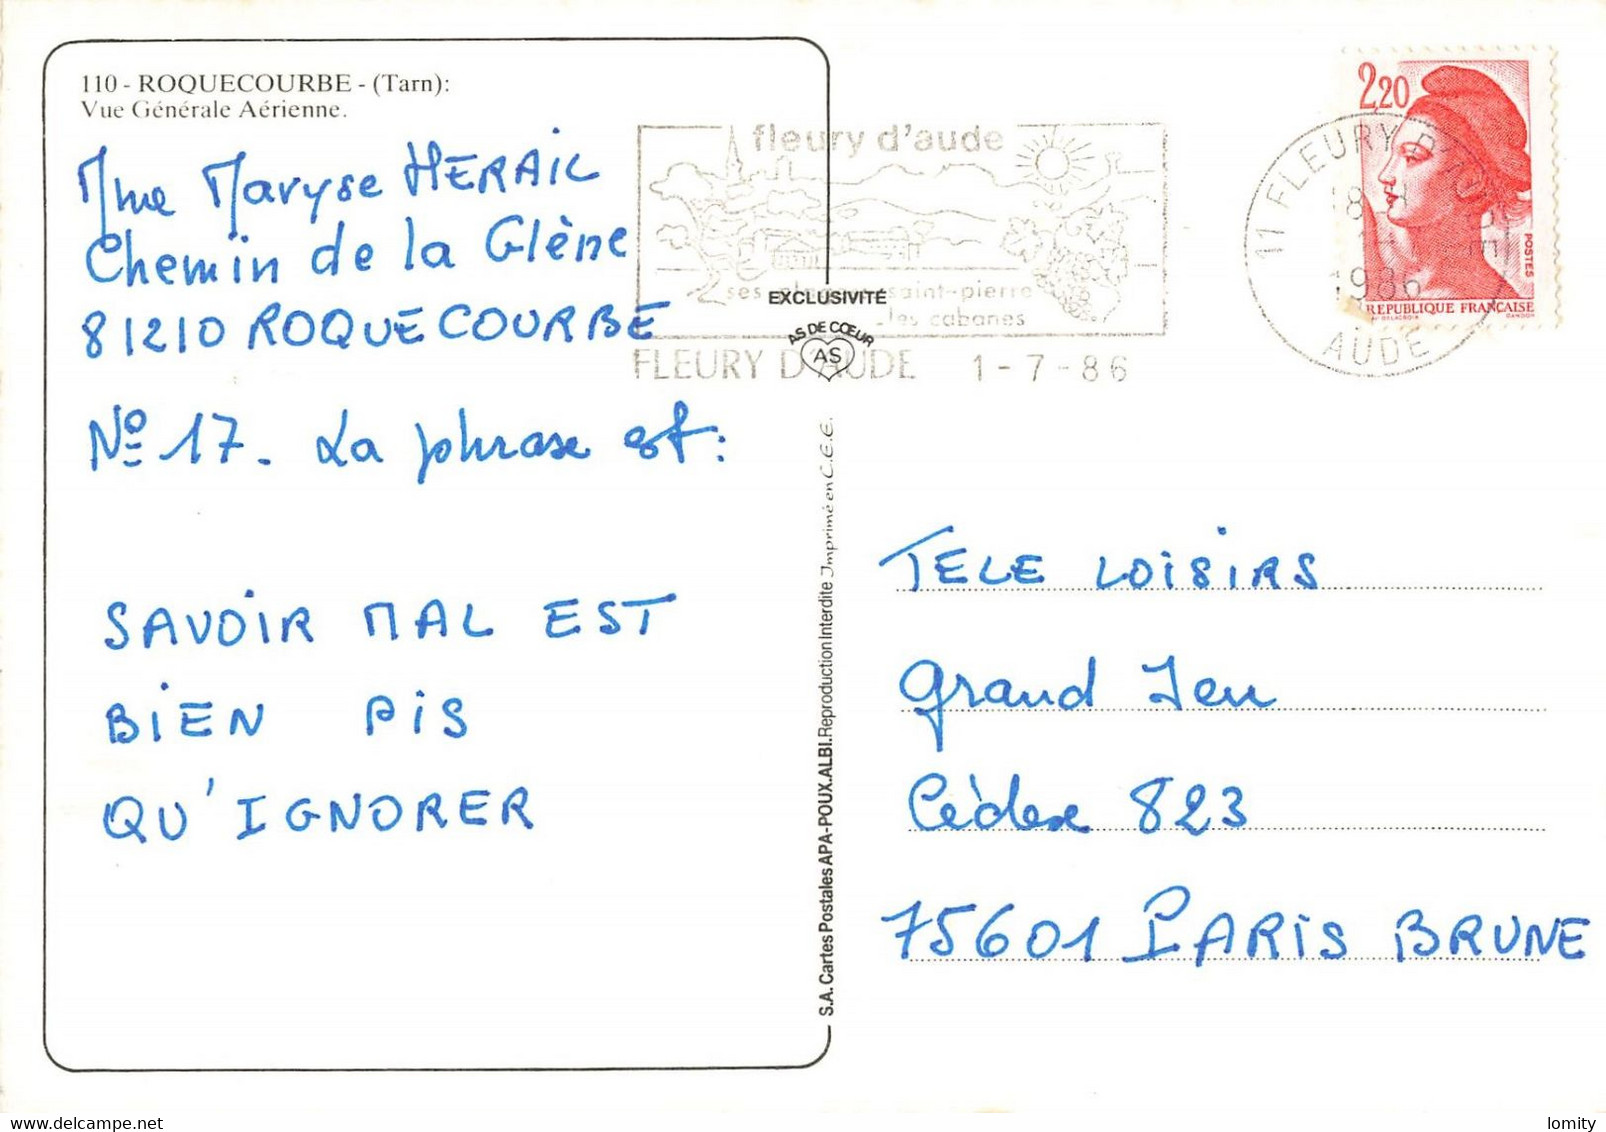 110 - ROQUECOURBE - (Tarn):
Vue Générale Aérienne.
Mme Maryse HERAIL
Chemin de la Glène
81210 ROQUECOURBE
No 17. La phrase est:
SAVOIR MAL EST
BIEN PIS
QU'IGNORER
fleury d'aude
ses plages saint-pierre
les cabanes
FLEURY D'AUDE 1-7-86
EXCLUSIVITÉ
AS DE CŒUR
AS
S.A. Cartes Postales APA-POUX.ALBI. Reproduction Interdite Imprimé en C.E.E.
2,20
POSTES
REPUBLIQUE FRANÇAISE
11 FLEURY D'AUDE
1986
AUDE
TELE LOISIRS
Grand Jeu
Cédex 823
75601 PARIS BRUNE
lomity